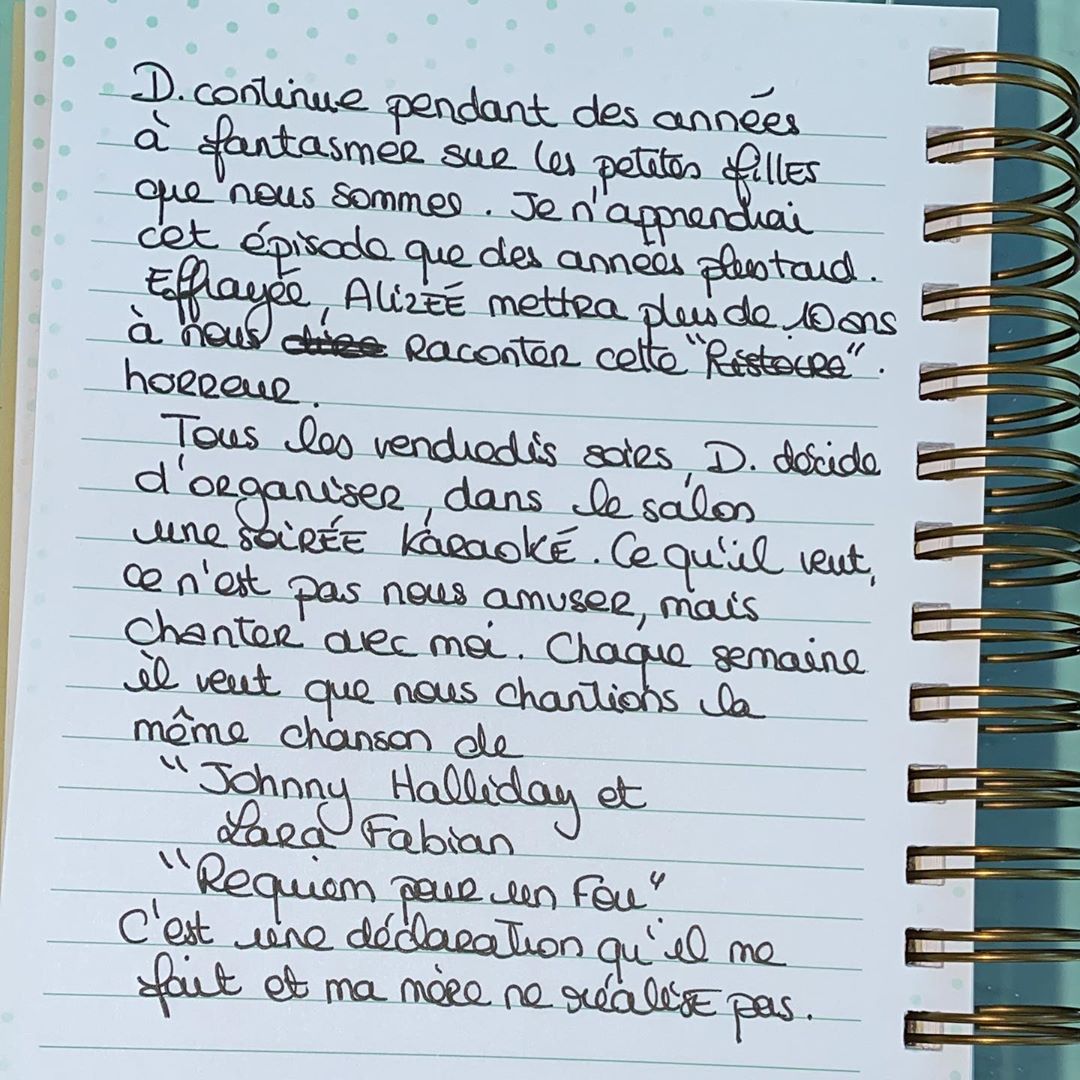 D. continue pendant des années
à fantasmer sur les petites filles
que nous sommes. Je n'apprendrai
cet épisode que des années plus tard.
Effrayée, ALIZÉE mettra plus de 10 ans
à nous dire raconter cette "histoire".
horreur.
Tous les vendredis soirs, D. décide
d'organiser, dans le salon
une soirée karaoké. Ce qu'il veut,
ce n'est pas nous amuser, mais
chanter avec moi. Chaque semaine
il veut que nous chantions la
même chanson de
"Johnny Halliday et
Lara Fabian
"Requiem pour un Fou"
C'est une déclaration qu'il me
fait et ma mère ne réalise pas.